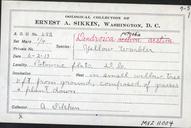 OOLOGICAL COLLECTION OF
ERNEST A. SIKKEN, WASHINGTON, D. C.
A. O. U. No. 652 Name Dendroica aestiva aestiva
Set Mark 1/4 Species: Yellow Warbler
Date 6-2-13
Place Potomac flats D.C.
Nest in small willow tree
4 ft from ground, composed of grasses
& plant down
Collector A. Sikken
MVZ 11004